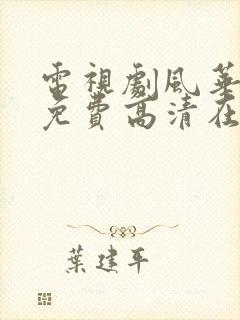 電視劇風華
免費高清在
葉建平